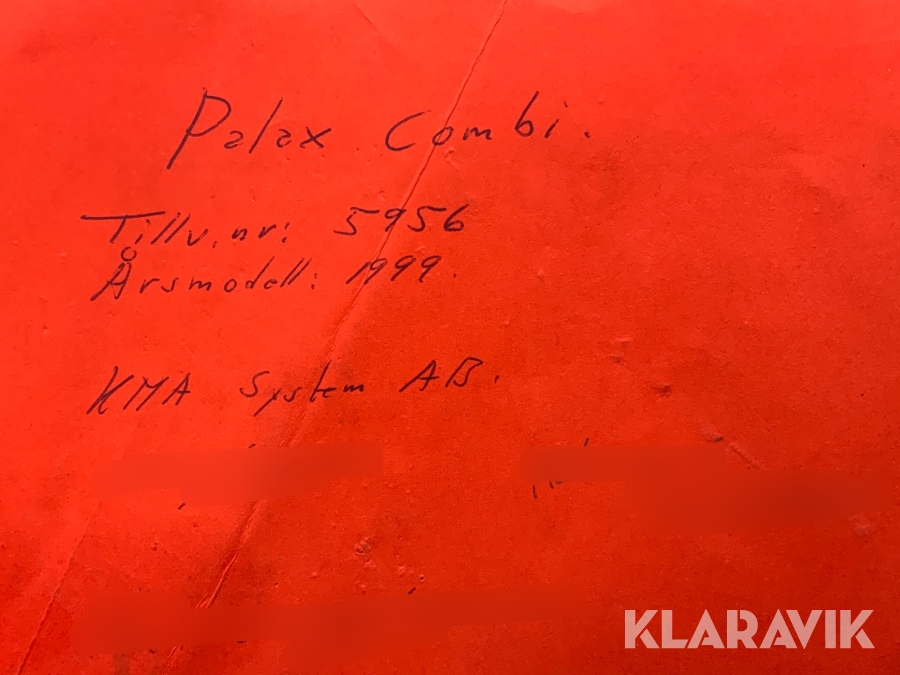 Palax Combi.
Tillv.nr: 5956
Årsmodell: 1999.
KMA System AB.
KLARAVIK